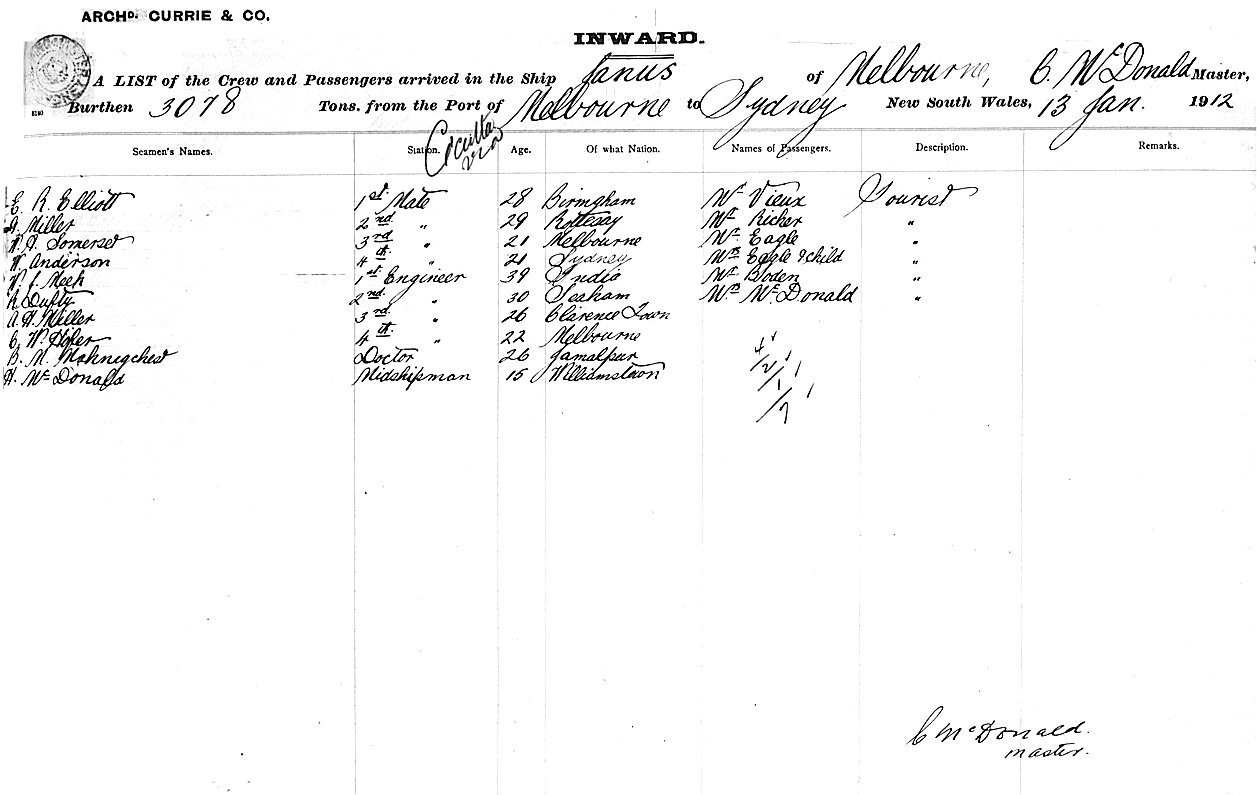 ARCHD. CURRIE & CO.
INWARD.
A LIST of the Crew and Passengers arrived in the Ship Janus of Melbourne, C. McDonald Master,
Burthen 3078 Tons. from the Port of Melbourne to Sydney New South Wales, 13 Jan. 1912
via
Seamen's Names. Station. Age. Of what Nation. Names of Passengers. Description. Remarks.
E. R. Elliott 1st Mate 28 Birmgham Mr Vieux Tourist
Miller 2nd " 29 Rottesay Mr Richer "
Somerset 3rd " 21 Melbourne Mr Eagle "
W. Anderson 4th " 21 Sydney Mrs Eagle & child "
Meek 1st Engineer 39 India Mr Boden "
Dufty 2nd " 30 Seaham Mrs McDonald "
A. H. Miller 3rd " 26 Clarence Town
C. W. 4th " 22 Melbourne
B. M. Doctor 26 Jamalpur
H. McDonald Midshipman 15 Williamstown
4
/2/
/1/
/7
C McDonald.
master.